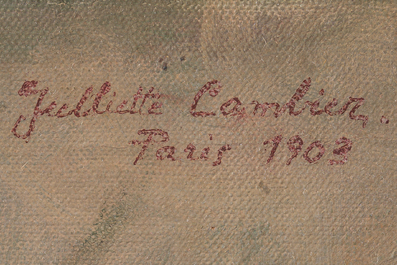 Julliette Cambier.
Paris 1903